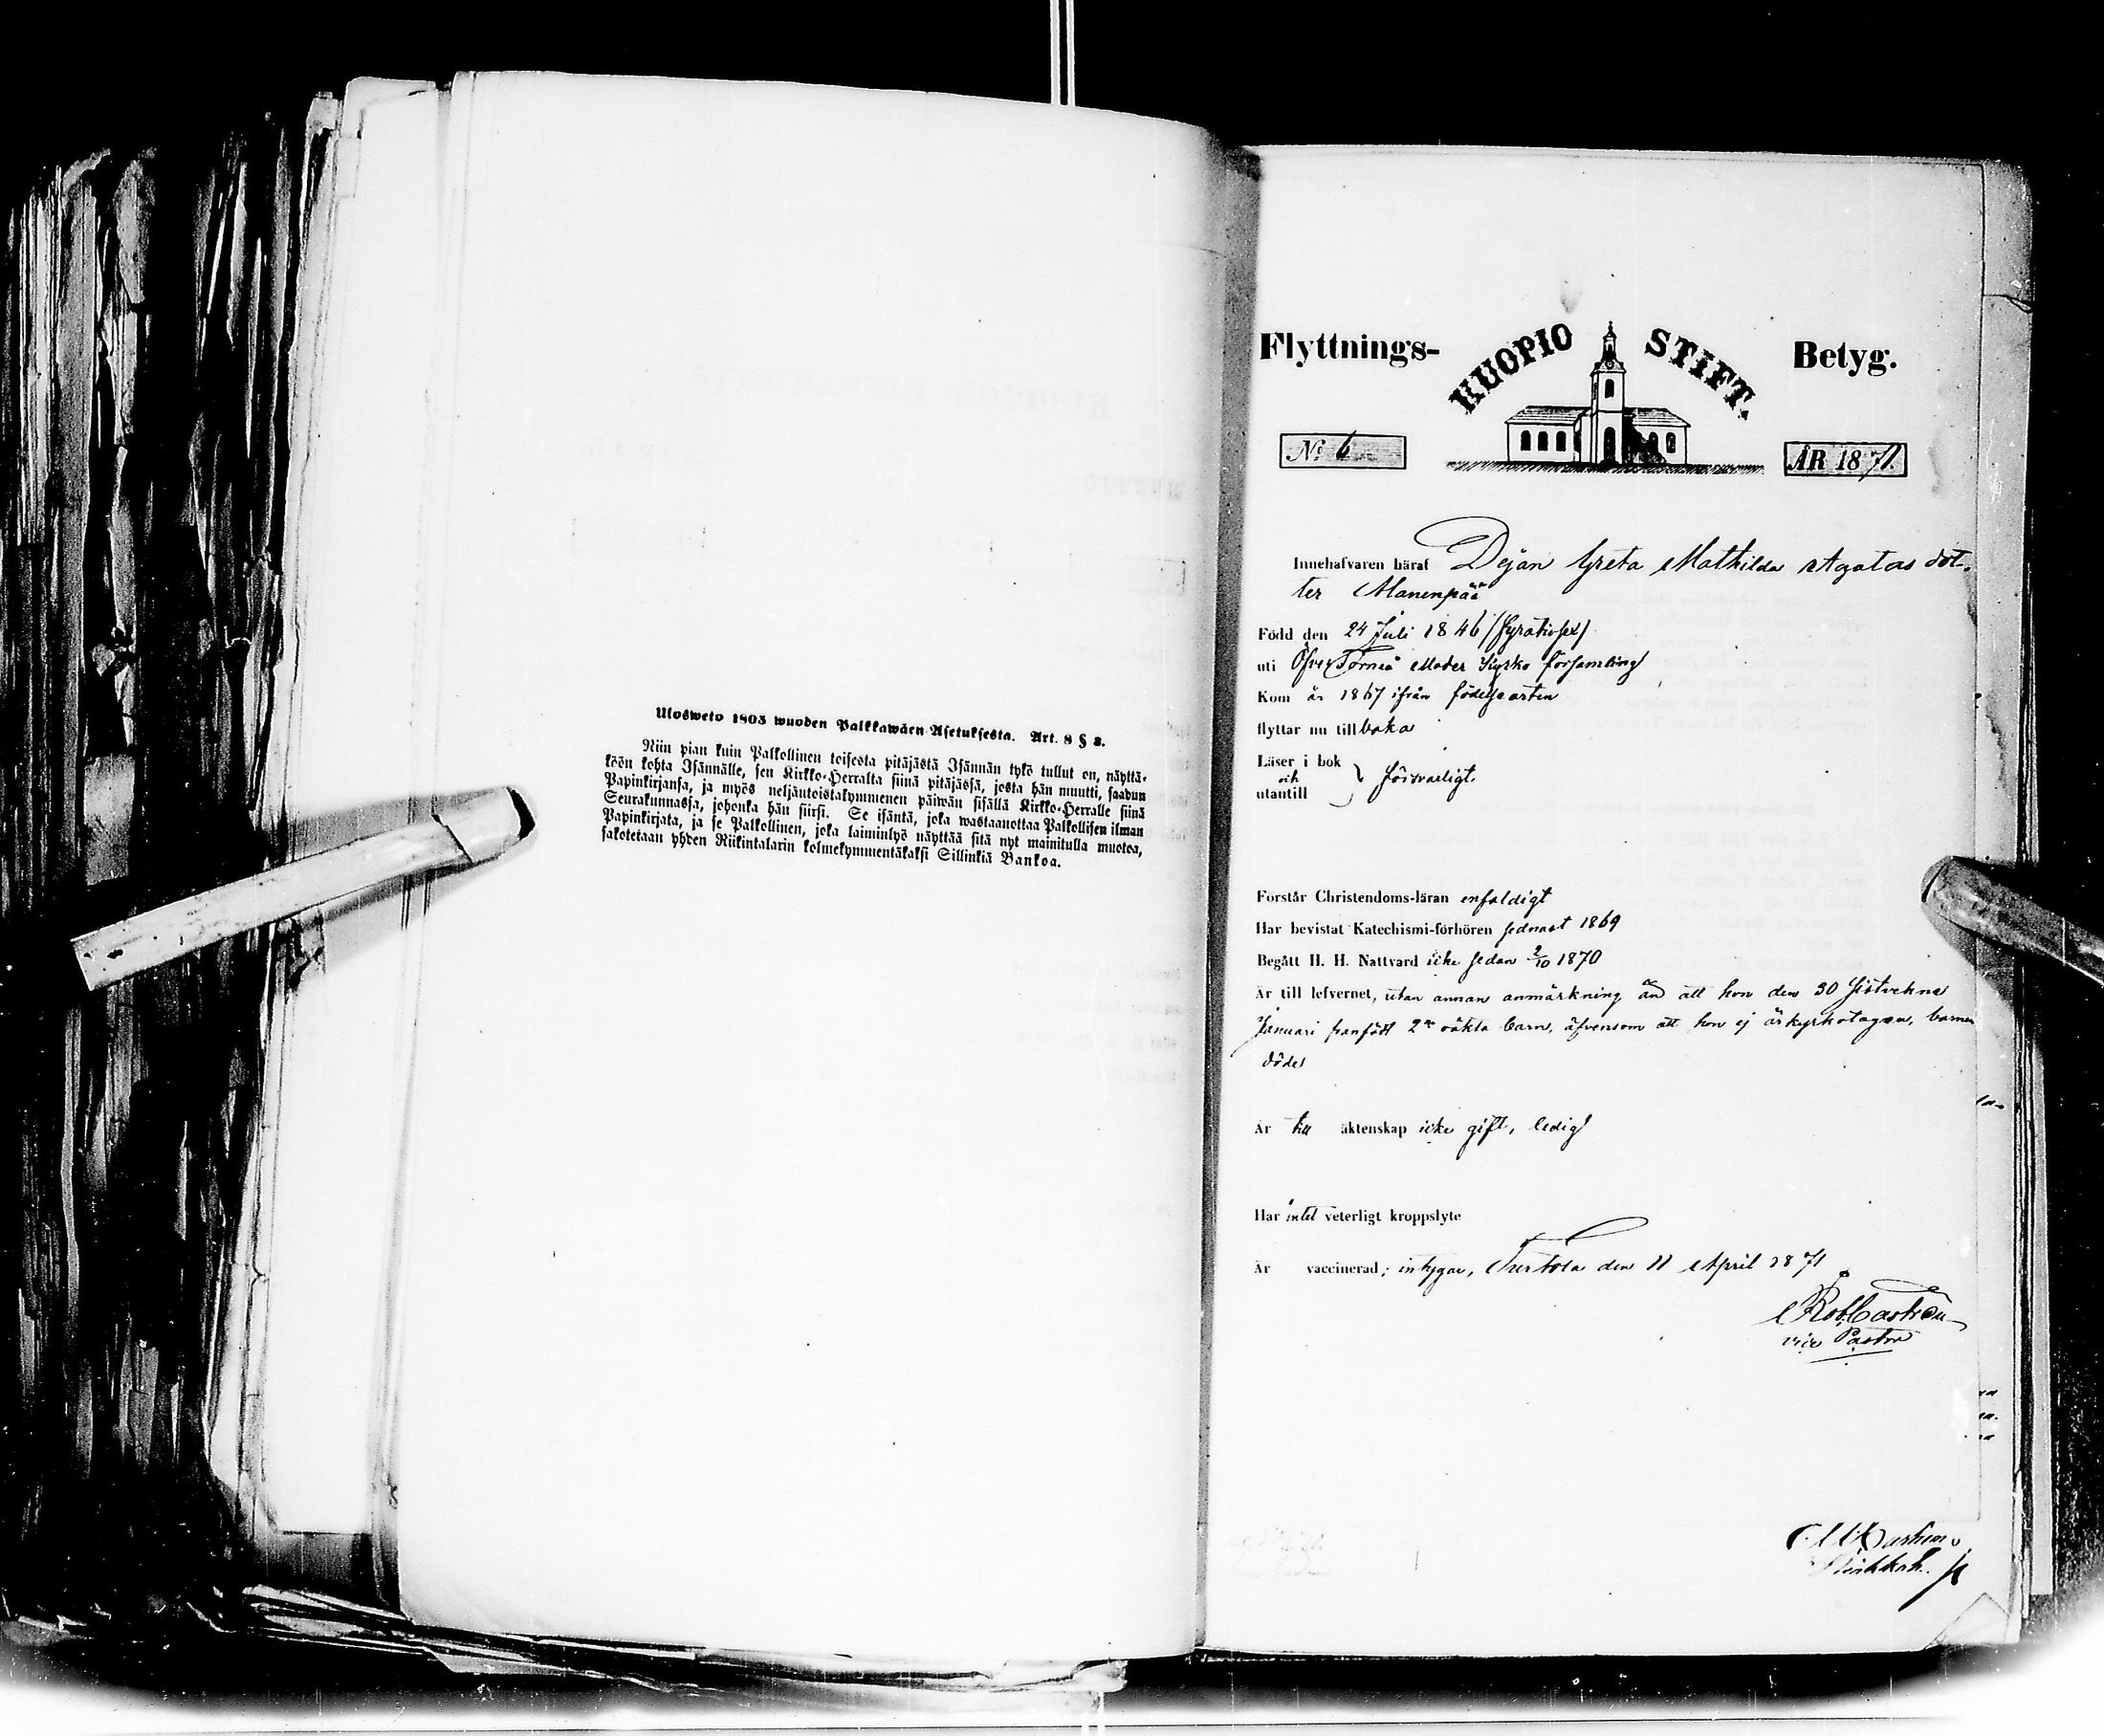 Ulosweto 1805 wuoden Palkkawäen Asetuksesta. Art. 8 § 2.
Niin pian kuin Palkollinen toisesta pitäjästä Isännän tykö tullut on, näyttä-
köön kohta Isännälle, sen Kirkko-Herralta siinä pitäjässä, josta hän muutti, saadun
Papinkirjansa, ja myös neljäntoistakymmenen päiwän sisällä Kirkko-Herralle siinä
Seurakunnassa, johonka hän siirsi. Se isäntä, joka wastaanottaa Palkollisen ilman
Papinkirjata, ja se Palkollinen, joka laiminlyö näyttää sitä nyt mainitulla muotoa,
sakotetaan yhden Riikintalarin kolmekymmentäkaksi Sillinkiä Bankoa.
Flyttnings- KUOPIO STIFT. Betyg.
No 6
ÅR 1871.
Innehafvaren häraf Dejan Greta Mathilda Agatas dot-
ter Alanenpää
Född den 24 Juli 1846 (fyratiosex)
uti Öfver Torneå Moder Kyrko församling
Kom år 1867 ifrån födelseorten
flyttar nu tillbaka
Läser i bok
och
utantill
försvarligt.
Förstår Christendoms-läran enfaldigt
Har bevistat Katechismi-förhören sednast 1869
Begått H. H. Nattvard icke sedan 2/10 1870
Är till lefvernet, utan annan anmärkning än att hon den 30 sistvekne
Januari framfödt 2ne oäkta barn, äfvensom att hon ej är kyrkotagen, barnen
döde
Är till äktenskap icke gift, ledig
Har intet veterligt kroppslyte
Är vaccinerad; intygar, Turtola den 11 April 1871
Rob. Castrén
vice Pastor